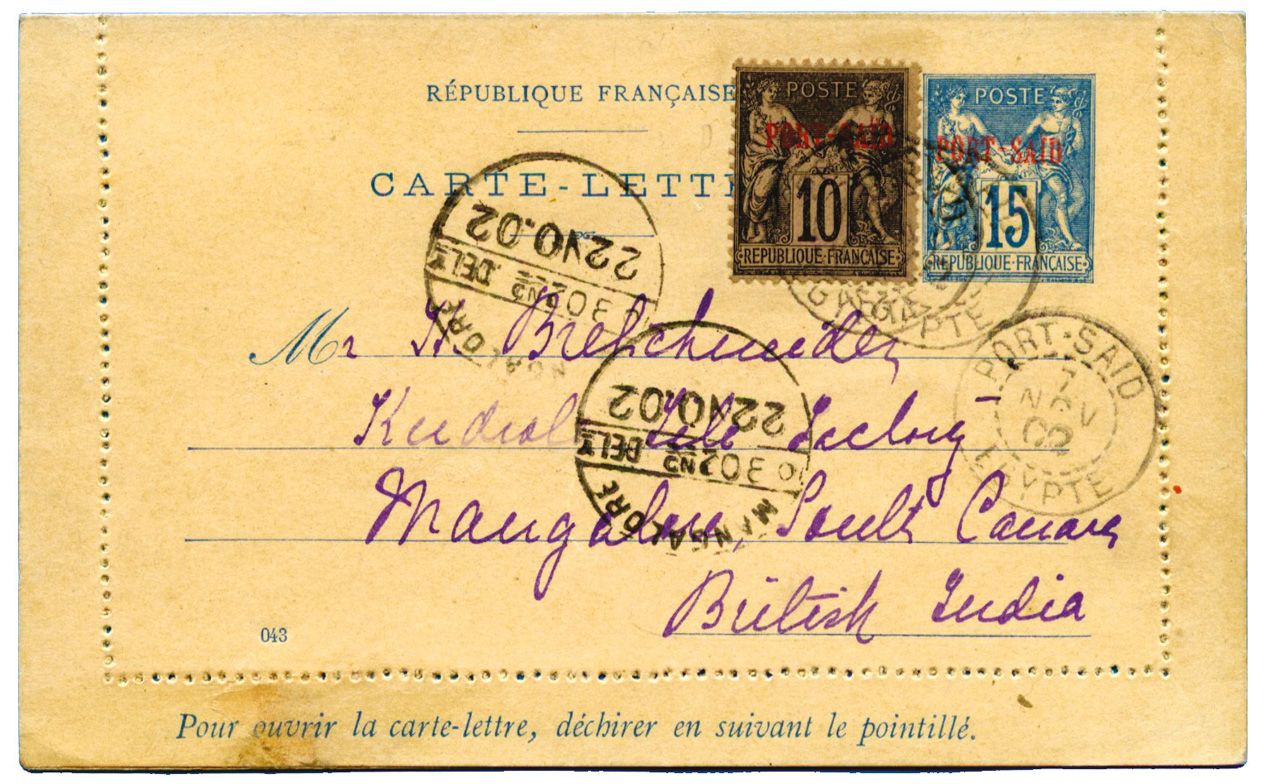 RÉPUBLIQUE FRANÇAISE
CARTE-LETT
POSTE
PORT-SAÏD
10
REPUBLIQUE FRANÇAISE
POSTE
PORT-SAÏD
15
REPUBLIQUE FRANÇAISE
22NO.02
302ND DELY
22NO.02
302ND DELY
MANGALORE
PORT-SAID
7
NOV
02
EGYPTE
Mr H. Bretschneider
Tile Factory
Mangalore, South Canara
British India
043
Pour ouvrir la carte-lettre, déchirer en suivant le pointillé.